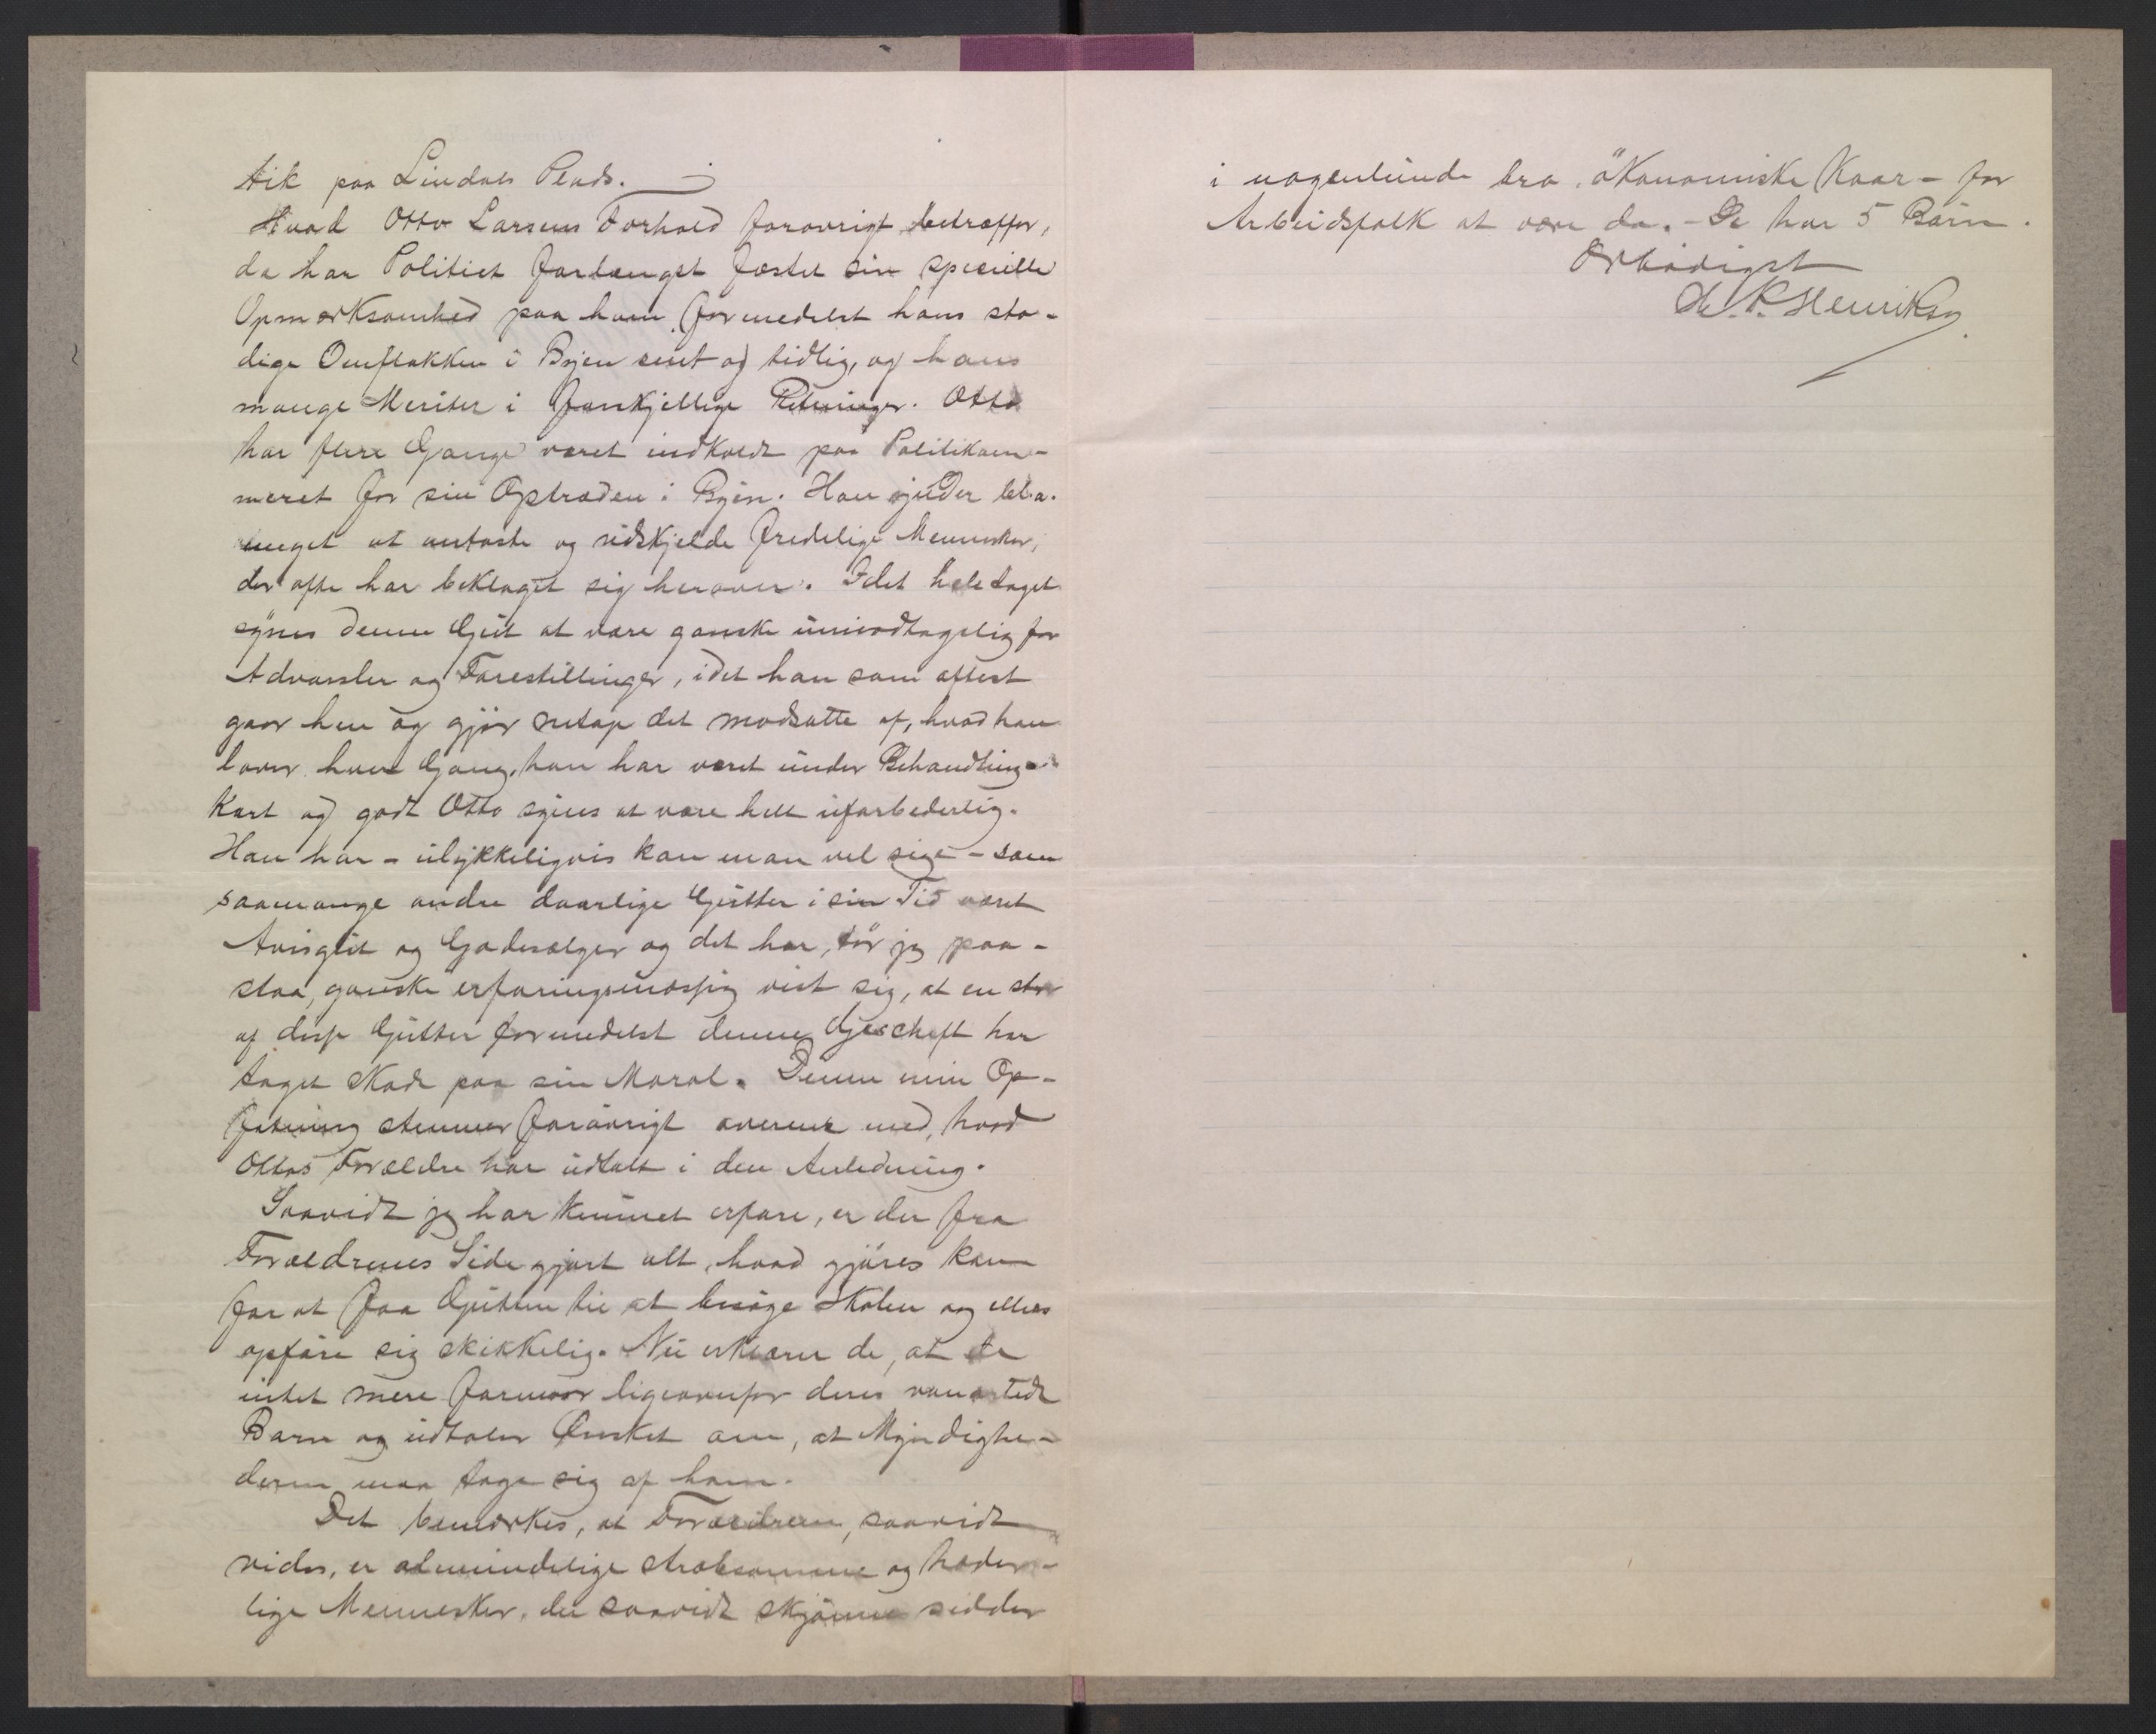 tik paa Lindals Plads.
Hvad Otto Larsens Forhold forøvrigt betræffer,
da har Politiet forlængst fæstet sin specielle
Opmærksomhed paa ham formedelst hans sta-
dige Omflakken i Byen sent og tidlig, og hans
mange Meriter i forskjellige Retninger. Otto
har flere Gange været indkaldt paa Politikam-
meret for sin Optræden i Byen. Han ynder bl. a.
meget at antaste og udskjelde fredelige Mennesker,
der ofte har beklaget sig herover. I det heletaget
synes denne Gut at være ganske uimodtagelig for
Advarsler og Forestillinger, idet han som oftest
gaar hen og gjør netop det modsatte af, hvad han
lover hver Gang, han har været under Behandling.
Kort og godt Otto synes at være helt uforbederlig.
Han har - ulykkeligvis kan man vel sige - som
saamange andre daarlige Gutter i sin Tid været
Avisgut og Gadesælger og det har, tør jeg paa-
staa, ganske erfaringsmæssig vist sig, at en stor
af disse Gutter formedelst denne Gjescheft har
taget Skade paa sin Moral. Denne min Op-
fatning stemmer forøvrigt overens med, hvad
Ottos Forældre har udtalt i den Anledning.
Saavidt jeg har kunnet erfare, er der fra
Forældrenes Side gjort alt, hvad gjøres kan
for at faa Gutten til at besøge Skolen og ellers
opføre sig skikkelig. Nu erklærer de, at de
intet mere formaar ligeoverfor deres vanartede
Barn og udtaler Ønsket om, at Myndighe-
derne maa tage sig af ham.
Det bemærkes, at Forældrene, saavidt
vides, er almindelige stræbsomme og hæder-
lige Mennesker, der saavidt skjønnes sidder
i nogenlunde bra økonomiske Kaar - for
Arbeidsfolk at være da. - De har 5 Børn.
Ærbødigst
P. Henriksen